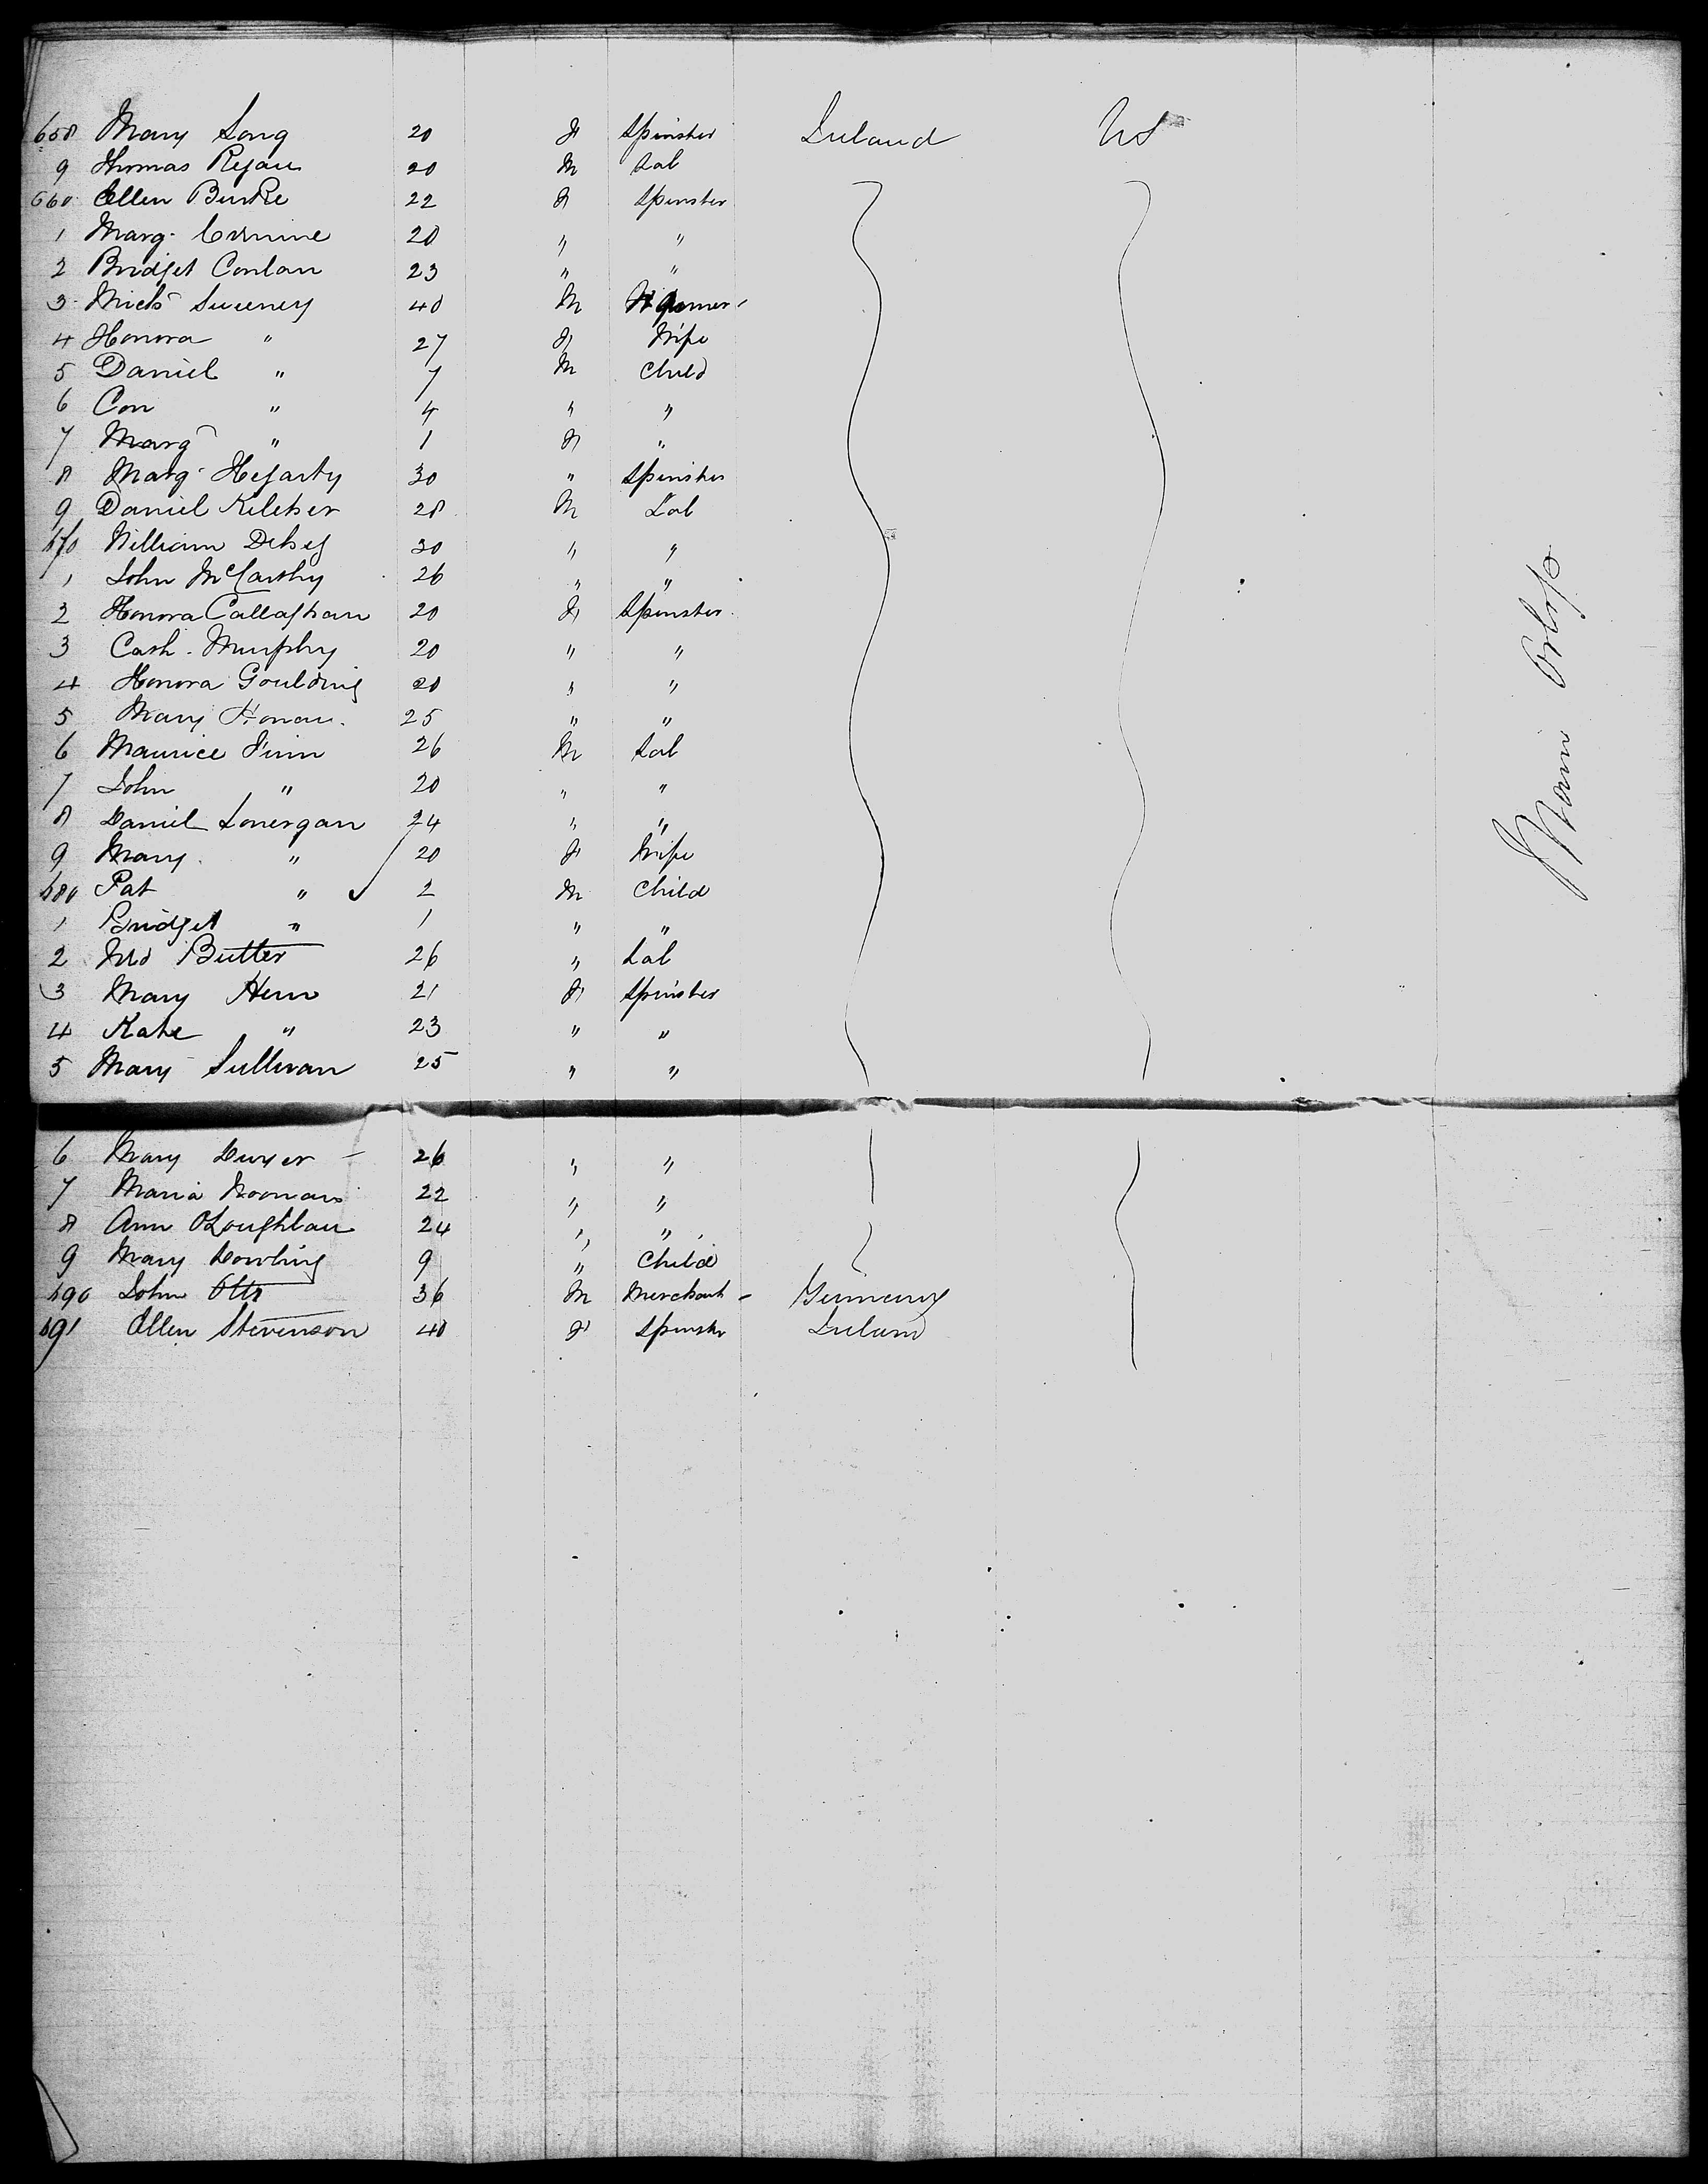 658 Mary Long 20 F Spinster Ireland US
9 Thomas Regan 20 M Lab
660 Ellen Burke 22 F Spinster
1 Marg. 20 " "
2 Bridget Conlan 23 " "
3 Mich Sweeney 40 M Farmer
4 Honora " 27 F Wife
5 Daniel " 7 M Child
6 Con " 4 " "
7 Marg " 1 F "
8 Marg Hegarty 30 " Spinster
9 Daniel Keleher 28 M Lab
670 William 30 " "
1 John McCarthy 26 " "
2 Honora Callaghan 20 F Spinster
3 Cath. Murphy 20 " "
4 Honora Goulding 20 " "
5 Mary Honan 25 " "
6 Maurice Finn 26 M Lab
7 John " 20 " "
8 Daniel Lonergan 24 " "
9 Mary " 20 F Wife
680 Pat " 2 M Child
1 Bridget " 1 " "
2 Butler 26 " Lab
3 Mary Hern 21 F Spinster
4 Kate " 23 " "
5 Mary Sullivan 25 " "
6 Mary Dwyer 26 " "
7 Maria Noonan 22 " "
8 Ann O'Loughlan 24 " "
9 Mary Dowling 9 " Child
690 John Otto 36 M Merchant Germany
691 Ellen Stevenson 40 F Spinster Ireland
Main